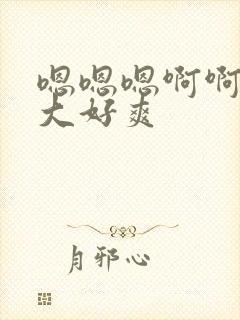 嗯嗯嗯啊啊
大好爽
月邪心